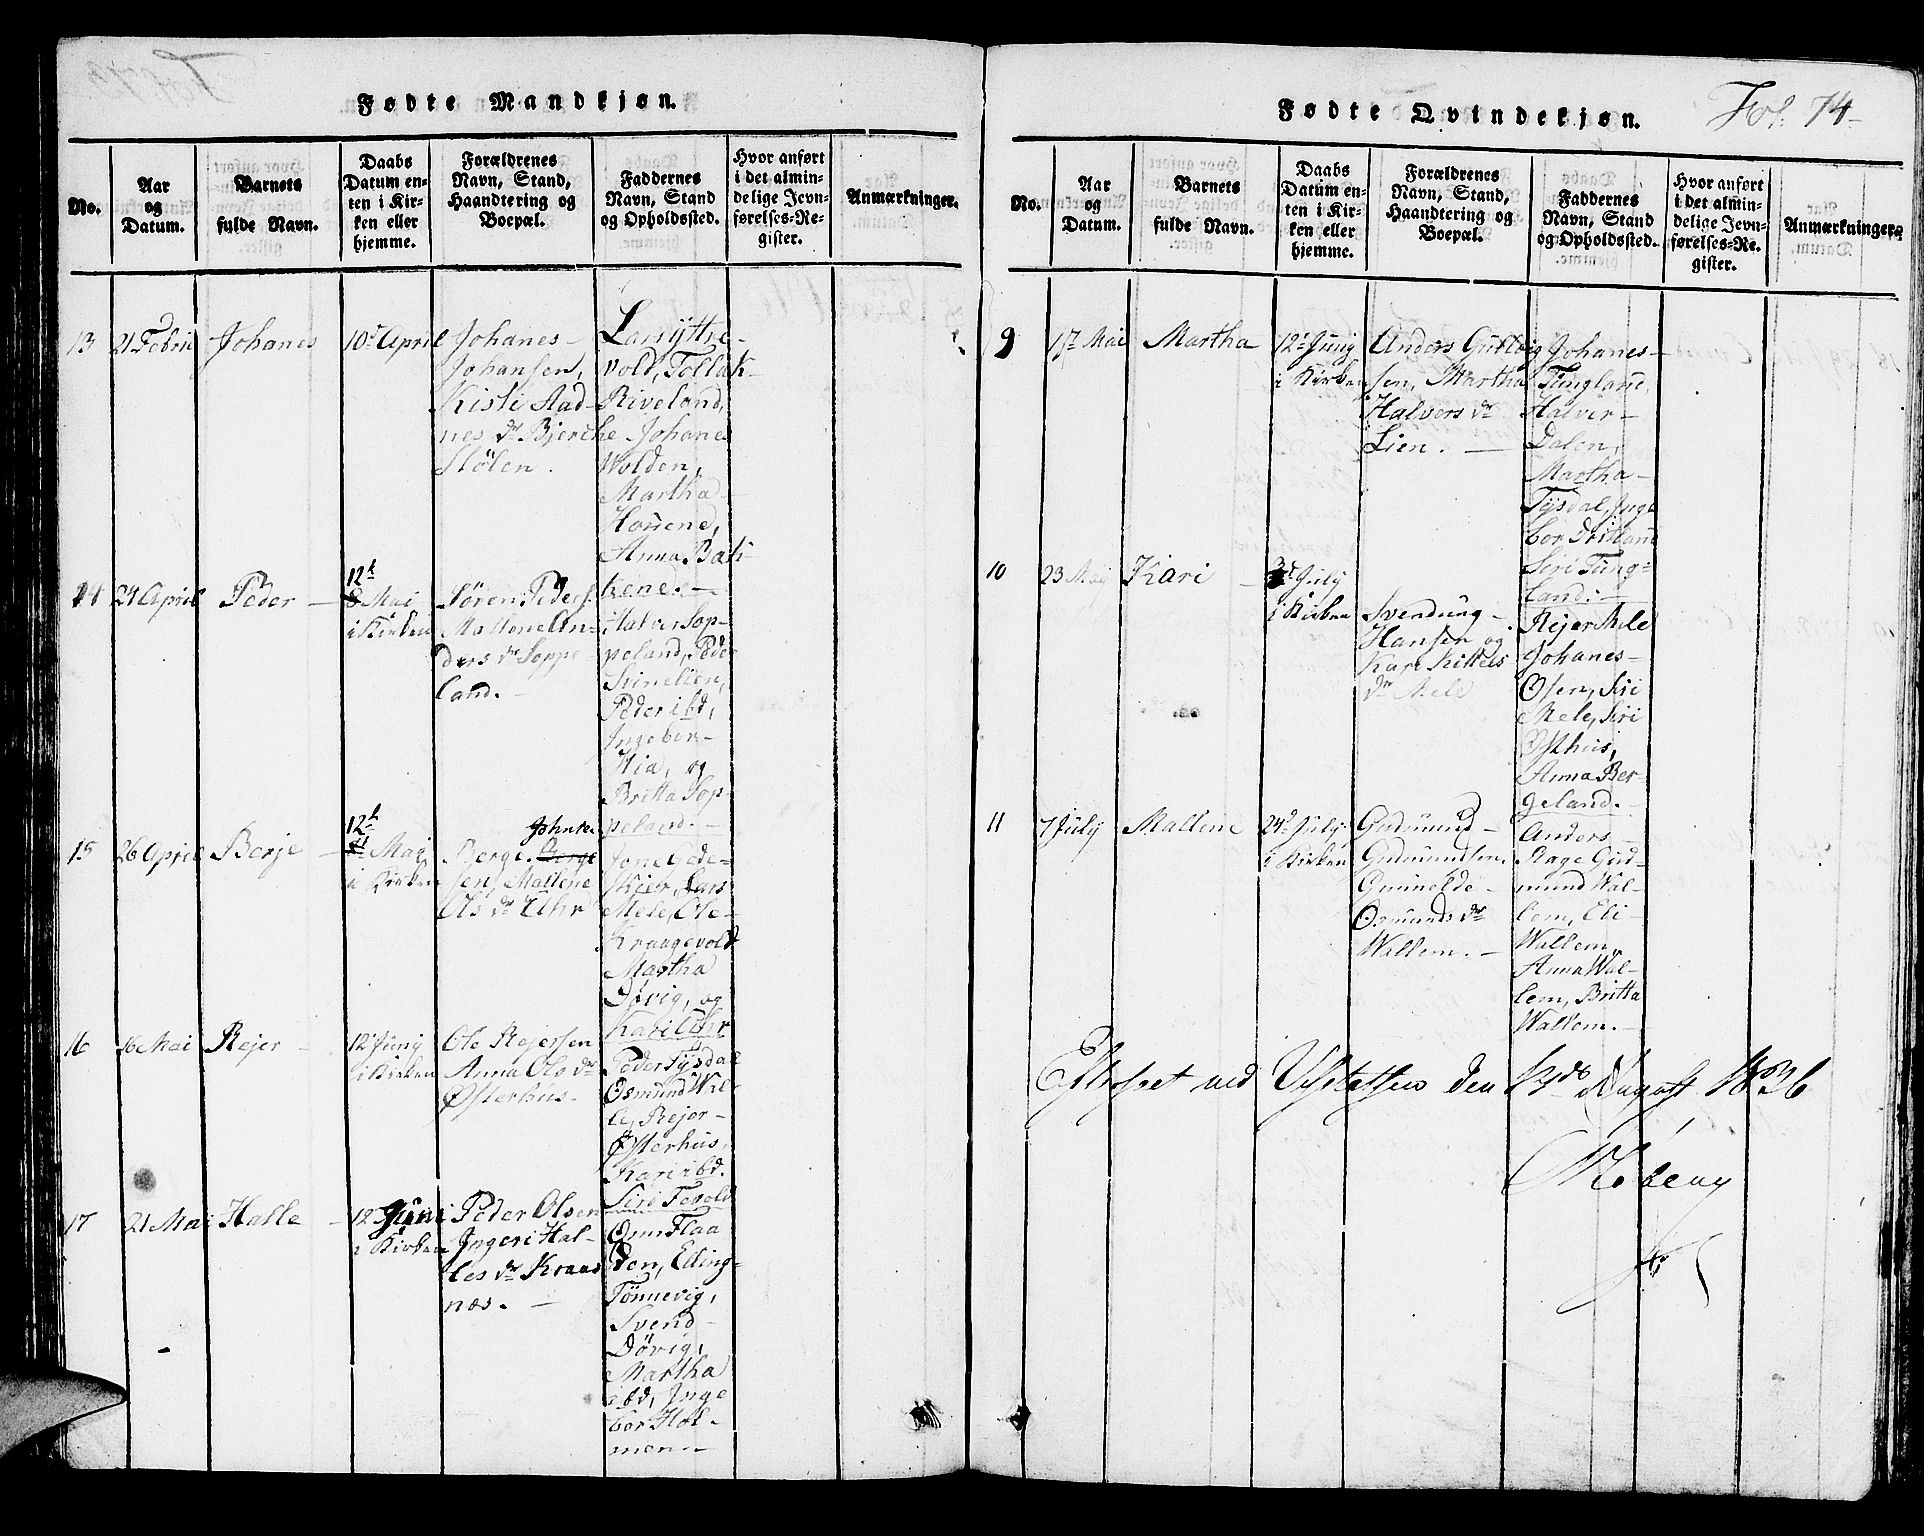 Fødte Mandkjøn.
No.
Aar
og
Datum.
Barnets
fulde Navn.
Daabs
Datum en-
ten i Kir-
ken eller
hjemme.
Forældrenes
Navn, Stand,
Haandtering og
Boepæl.
Faddernes
Navn, Stand
og Opholdssted.
Hvor anført
i det almin-
delige Jevn-
førelses-Re-
gister.
Anmærkninger.
13
21 Febri
Johanes
10d April
Johanes
Johansen,
Kisti Aad-
nes dr Bjerche
Stölen.
Lars Ytre-
vold, Tollak
Riveland,
Johanes
Wolden,
Martha
Houene,
Anna Bak-
kene.
14
24 April
Peder
12t
8 Mai
i Kirken
Sören Peders.
Mallene An-
ders dr Soppe
land.
Halver Sop-
peland, Peder
Svinelien,
Peder ibd,
Ingebor
Hia, og
Britta Sop-
peland.
15
26 April
Berje
12t
Maj
i Kirken
Johan-
Berge Berge
sen, Mallene
Ols dr Uhr
Lars
Mele, Ole
Kraagevold
Martha
Dövig, og
Kari Uhr
16
16 Mai
Rejer
12t Junj
i Kirken
Ole Rejersen
Anna Ols dr
Østerhus.
Peder Tysdal
Osmund Wil-
le, Rejer
Østerhus,
Kari ibd.
Siri Tevold
17
21 Mai
Halle
12 Juni
i Kirken
Peder Olsen
Ingeri Hal-
les dr Kraas
nas.
Omr Flaa
den, Eding
Tönnevig,
Svend
Dövig,
Martha
ibd, Inge
bor Hol-
men.
Fødte Qvindekjøn.
Fol. 74
No.
Aar
og
Datum.
Barnets
fulde Navn.
Daabs
Datum en-
ten i Kir-
ken eller
hjemme.
Forældrenes
Navn, Stand,
Haandtering og
Boepæl.
Faddernes
Navn, Stand
og Opholdssted.
Hvor anført
i det almin-
delige Jevn-
førelses-Re-
gister.
Anmærkninger.
9
17 Mai
Martha
12t Junj
i Kirken
Anders Gutleig
sen, Martha
Halvers dr
Lien.
Johanes
Tungland,
Halver
Dalen,
Martha
Tysdal, Inge
bor Östland
Siri Tung-
land.
10
23 Maj
Kari
3t July
i Kirken
Svendung
Hansen og
Kari Kittels
dr Mele
Rejer Mele
Johanes
Osen, Siri
Mele, Siri
Østhus,
Anna Ber-
geland.
11
7 July
Mallene
24d July
i Kirken
Gudmund
Gudmundsen.
Gunnelde
Osmunds dr
Wallem.
Anders
Stage Gud-
mund Wal-
lem, Eli
Wallem,
Anna Wal-
lem, Britta
Wallem.
Efterseet ved Visitatsen den 13de August 1836